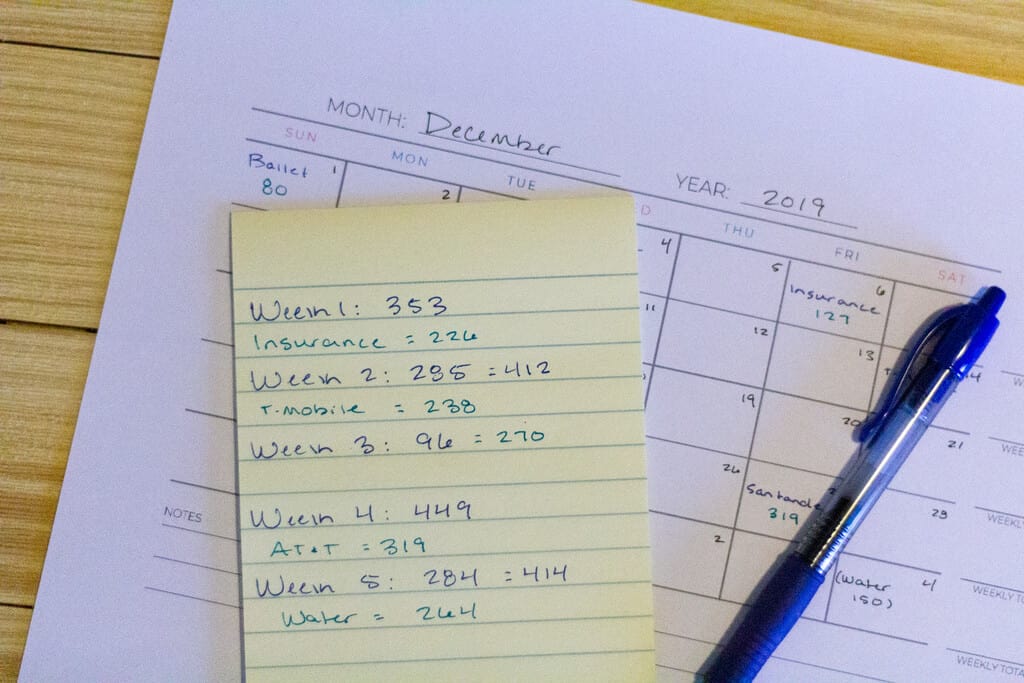 MONTH: December
YEAR: 2019
SUN MON TUE THU FRI SAT
Ballet 1
80
2
4
5
6
Insurance
127
11
12
13
19
20
21
26
Santande
319
28
2
4
(Water
150)
NOTES
WEEKLY TO
WEEKLY TOTA
Week 1: 353
Insurance = 226
Week 2: 285 = 412
T-mobile = 238
Week 3: 96 = 270
Week 4: 449
AT&T = 319
Week 5: 284 = 414
Water = 264